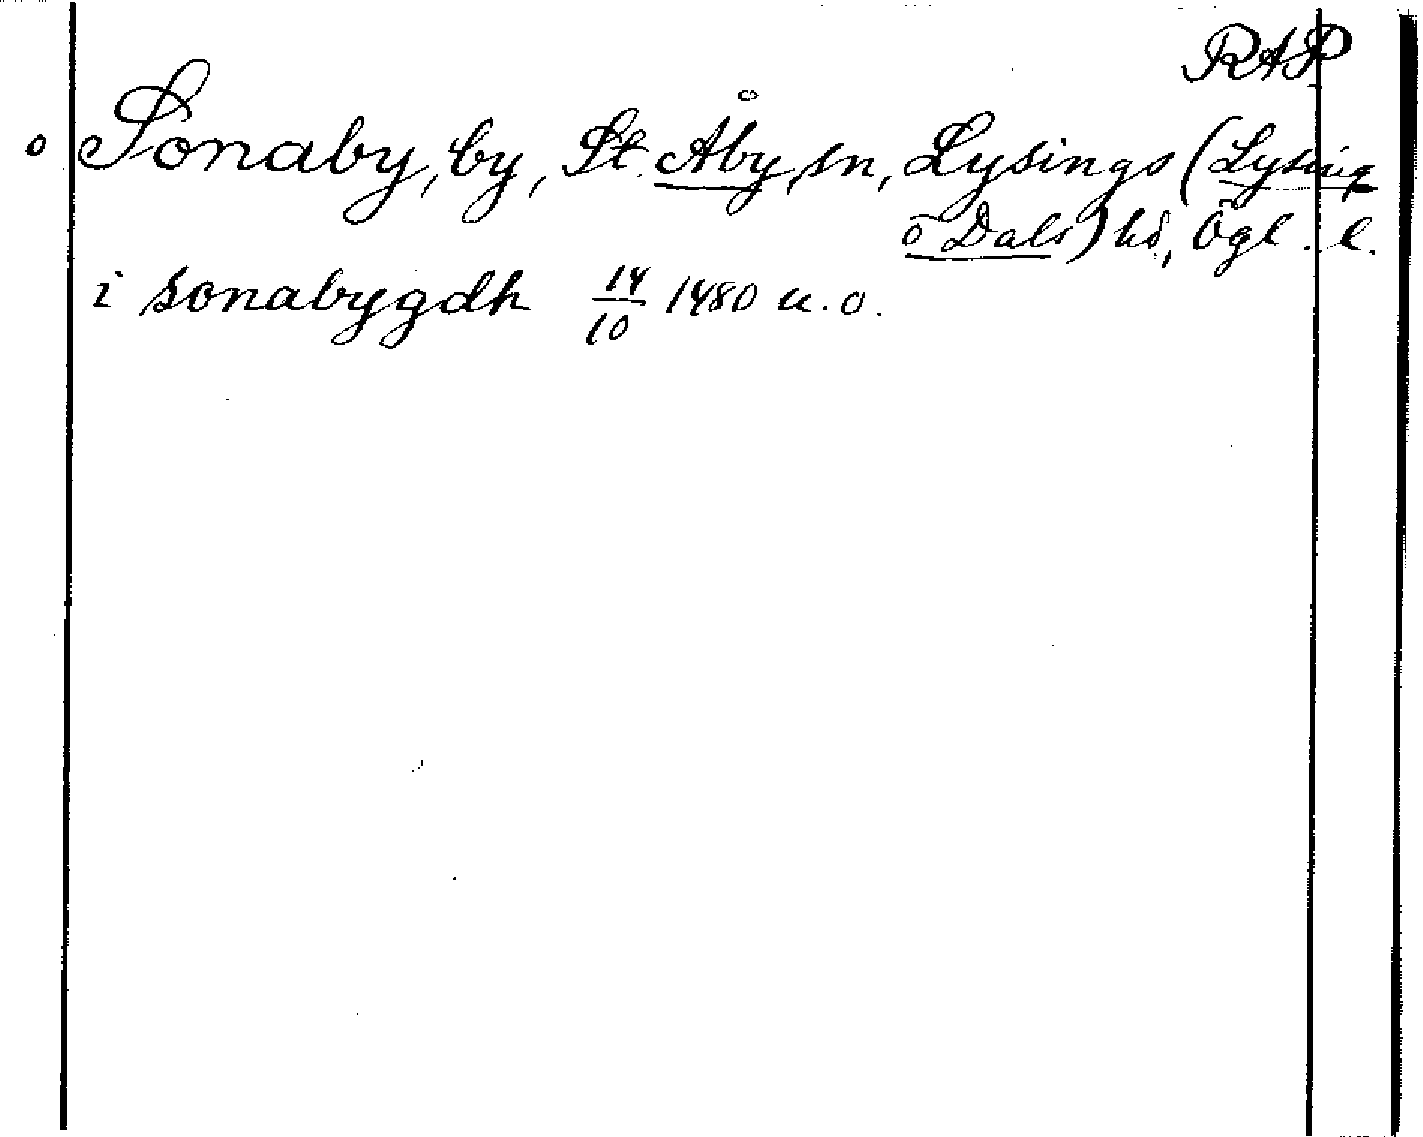 RAP
o Sonaby, by, St. Åby sn, Lysings (Lysing
o Dals) hd, Ögl. l.
i sonabygdh 14/10 1480 u. o.